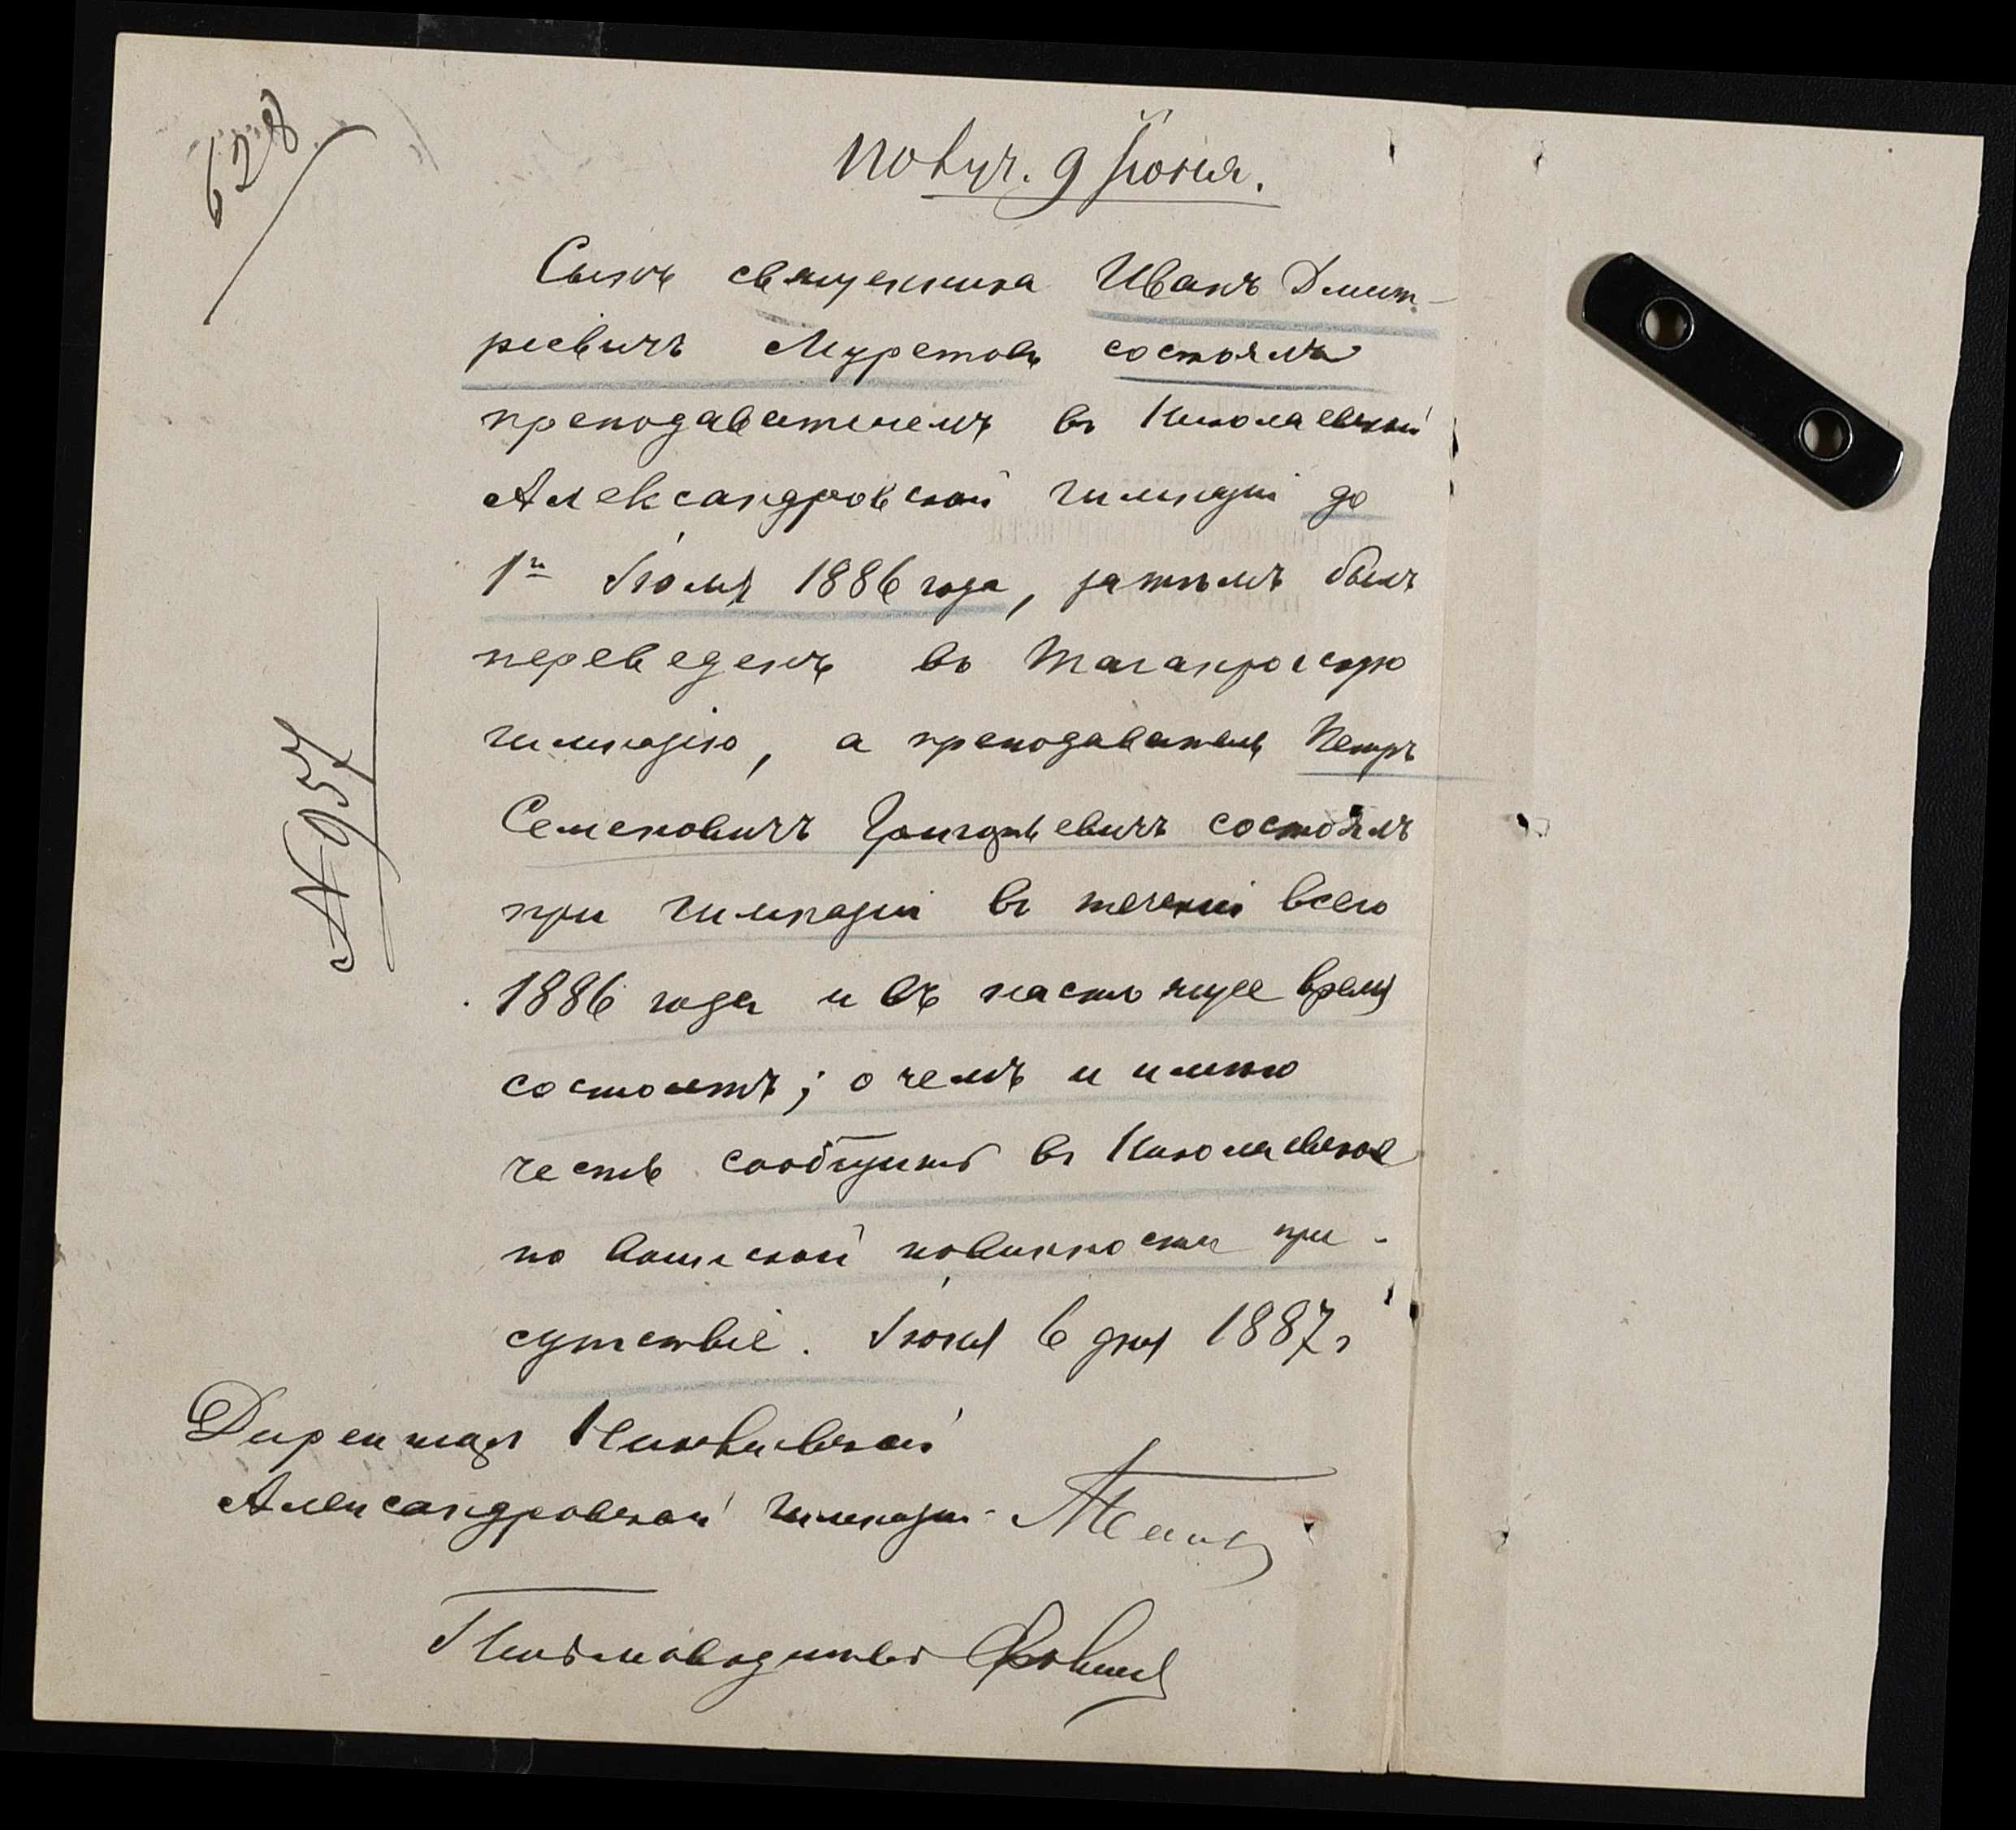 628
Получ. 9 Іюня.
Сынъ священника Иванъ Дмит-
ріевичъ Муретовъ состоялъ
преподавателемъ въ Николаевской
Александровской гимназіи до
1го Іюля 1886 года, затѣмъ былъ
переведенъ въ Таганрогскую
гимназію, а преподаватель Петръ
Семеновичъ Григорьевичъ состоялъ
при гимназіи въ теченіи всего
1886 года и въ настоящее время
состоитъ; о чемъ и имѣю
честь сообщить въ Николаевское
по воинской повинности при-
сутствіе. Іюня 6 дня 1887 г
№ 957
Директоръ Николаевской
Александровской гимназіи
Письмоводитель